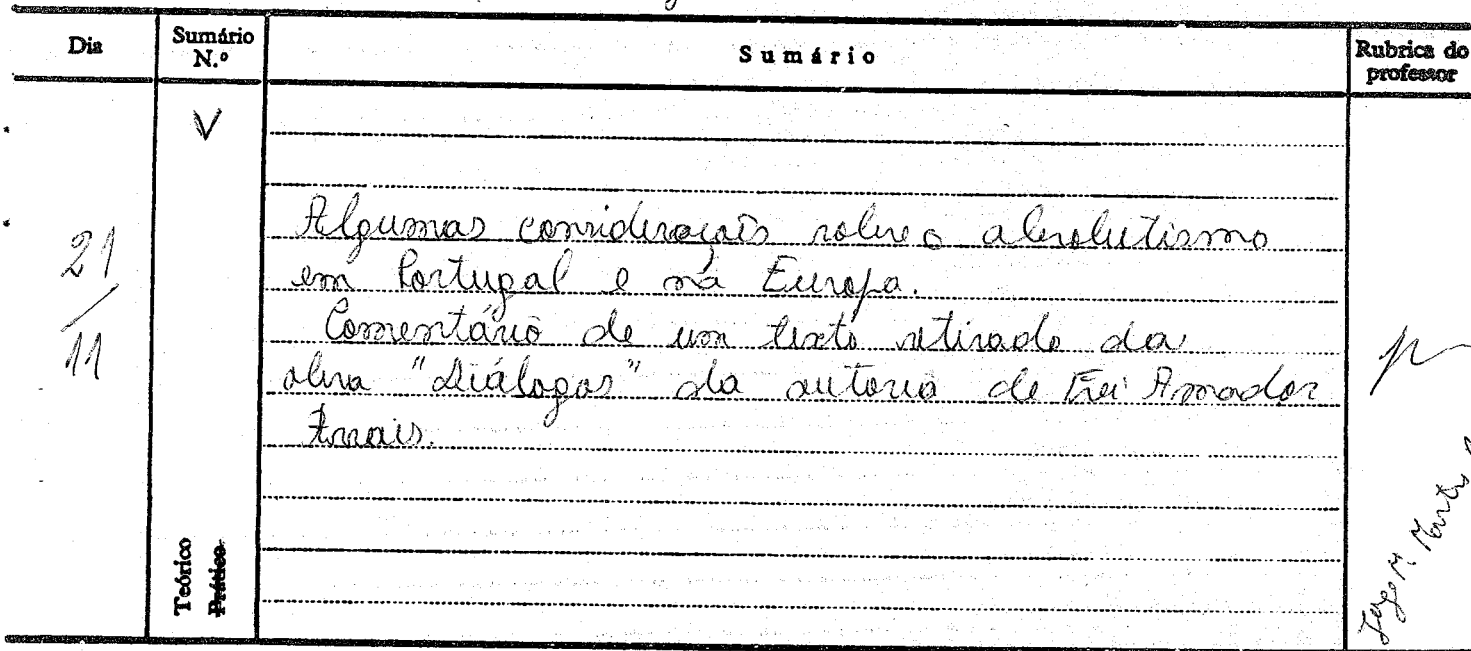 Dia
Sumário N.º
Sumário
Rubrica do professor
V
21/11
Algumas considerações sobre o absolutismo
em Portugal e na Europa.
Comentário de um texto retirado da
obra "Diálogos" da autoria de Frei Amador
Arrais.
Teórico
Prático